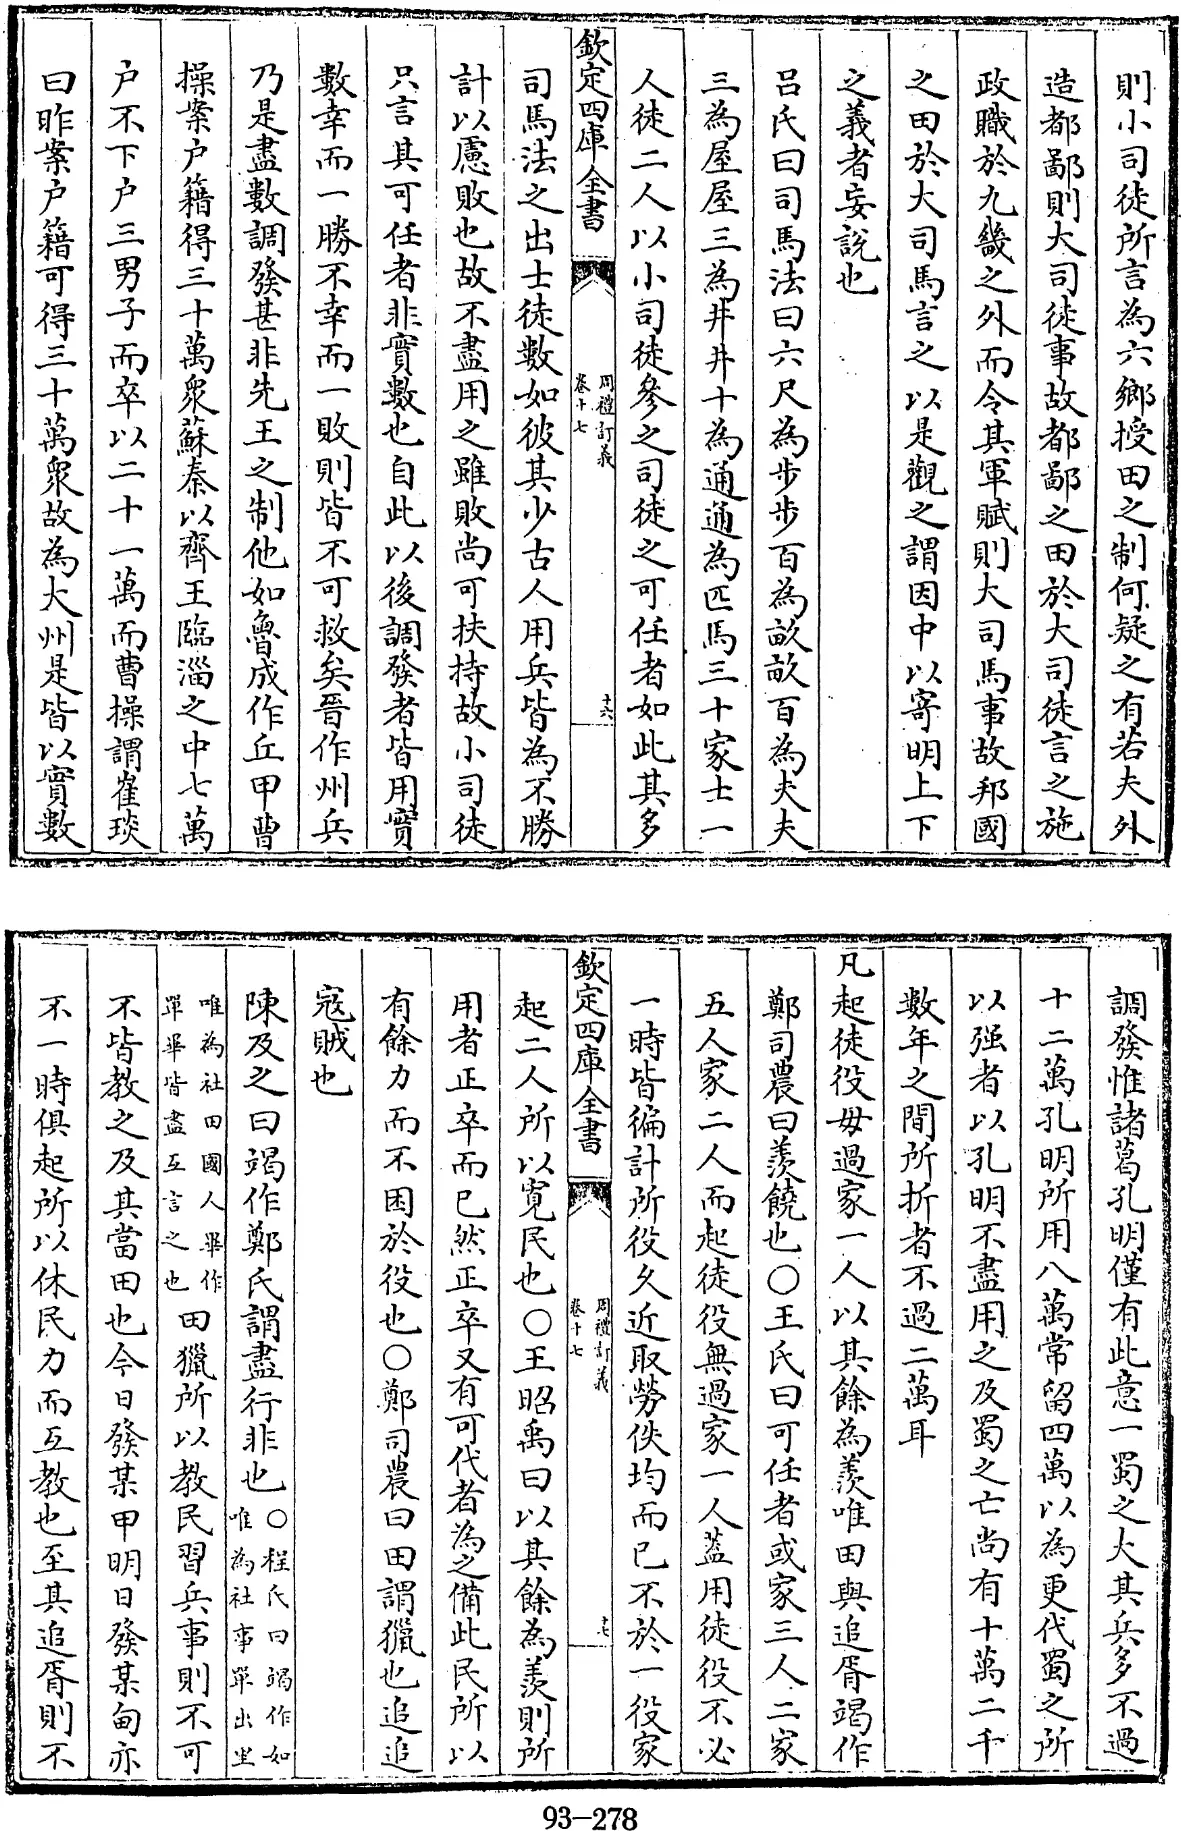 則小司徒所言為六鄉授田之制何疑之有若夫外
造都鄙則大司徒事故都鄙之田於大司徒言之施
政職於九畿之外而令其軍賦則大司馬事故邦國
之田於大司馬言之以是觀之謂因中以寄明上下
之義者妄說也
呂氏曰司馬法曰六尺為步步百為畝畝百為夫夫
三為屋屋三為井井十為通通為匹馬三十家士一
人徒二人以小司徒參之司徒之可任者如此其多
欽定四庫全書
周禮訂義
卷十七
十六
司馬法之出士徒數如彼其少古人用兵皆為不勝
計以慮敗也故不盡用之雖敗尚可扶持故小司徒
只言其可任者非實數也自此以後調發者皆用實
數幸而一勝不幸而一敗則皆不可救矣晉作州兵
乃是盡數調發甚非先王之制他如魯成作丘甲曹
操案户籍得三十萬衆蘇秦以齊王臨淄之中七萬
户不下户三男子而卒以二十一萬而曹操謂崔琰
曰昨案户籍可得三十萬衆故為大州是皆以實數
調發惟諸葛孔明僅有此意一蜀之大其兵多不過
十二萬孔明所用八萬常留四萬以為更代蜀之所
以强者以孔明不盡用之及蜀之亡尚有十萬二千
數年之間所折者不過二萬耳
凡起徒役毋過家一人以其餘為羨唯田與追胥竭作
鄭司農曰羨饒也○王氏曰可任者或家三人二家
五人家二人而起徒役無過家一人蓋用徒役不必
一時皆徧計所役久近取勞佚均而已不於一役家
欽定四庫全書
周禮訂義
卷十七
十七
起二人所以寛民也○王昭禹曰以其餘為羨則所
用者正卒而已然正卒又有可代者為之備此民所以
有餘力而不困於役也○鄭司農曰田謂獵也追追
寇賊也
陳及之曰竭作鄭氏謂盡行非也○程氏曰竭作如
唯為社事單出里
唯為社田國人畢作
單畢皆盡互言之也田獵所以教民習兵事則不可
不皆教之及其當田也今日發某甲明日發某甸亦
不一時俱起所以休民力而互教也至其追胥則不
93-278